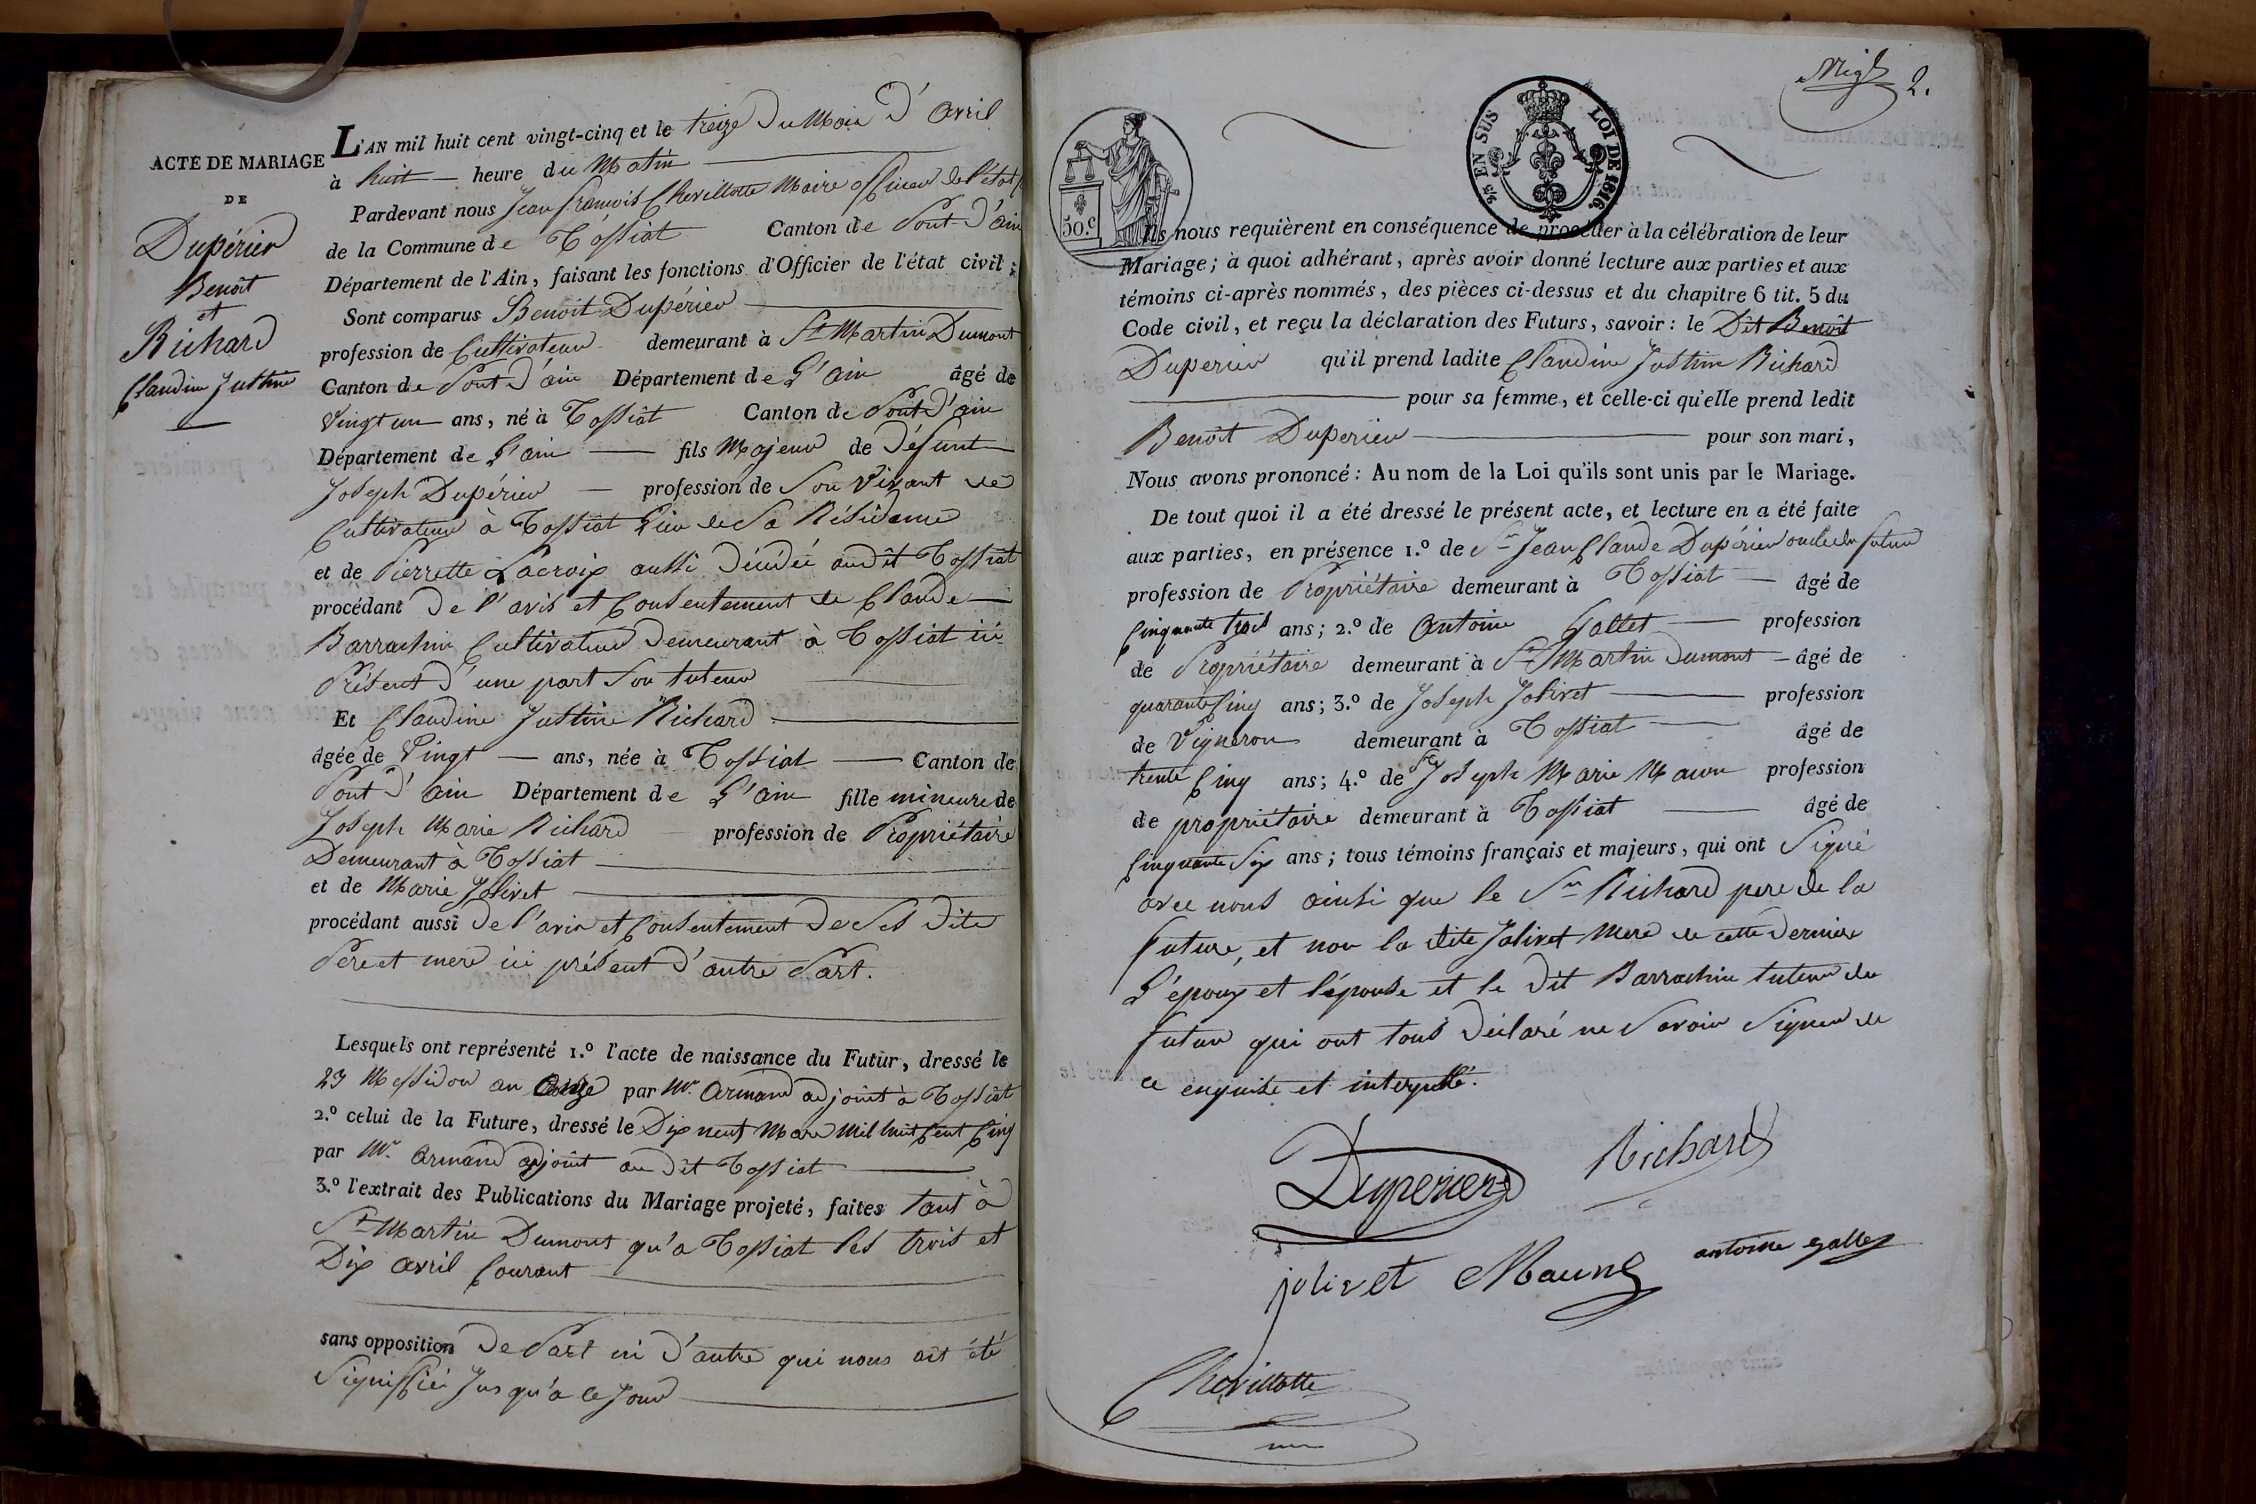 ACTE DE MARIAGE
DE
Dupérier
Benoit
et
Richard
Claudine Justine
L'AN mil huit cent vingt-cinq et le treize du Mois d'avril
à huit heure du Matin
Pardevant nous Jean françois Chevillotte Maire officier de l'état
de la Commune de Tossiat Canton de Pont d'ain
Département de l'Ain, faisant les fonctions d'Officier de l'état civil;
Sont comparus Benoit Dupérier
profession de Cultivateur demeurant à St Martin Dumont
Canton de Pont d'ain Département de L'ain âgé de
Vingt un ans, né à Tossiat Canton de Pont d'ain
Département de L'ain fils Majeur de Défunt
Joseph Dupérier profession de Son Vivant de
Cultivateur à Tossiat Lieu de Sa Résidence
et de Pierrette Lacroix aussi Décédée audit Tossiat
procédant De l'avis et Consentement de Claude
Barrachin Cultivateur Demeurant à Tossiat ici
Présent d'une part Son tuteur
Et Claudine Justine Richard
âgée de Vingt ans, née à Tossiat Canton de
Pont d'ain Département de L'ain fille mineure de
Joseph Marie Richard profession de Propriétaire
Demeurant à Tossiat
et de Marie Jolivet
procédant aussi de l'avis et Consentement De Ses dits
Pere et mere ici présent d'autre Part.
Lesquels ont représenté 1.º l'acte de naissance du Futur, dressé le
23 Messidor an par Mr. Armand adjoint à Tossiat
2.º celui de la Future, dressé le Dix neuf Mars Mil huit Cent Cinq
par Mr. Armand adjoint au dit Tossiat
3.º l'extrait des Publications du Mariage projeté, faites tant à
St Martin Dumont qu'a Tossiat les trois et
Dix avril Courant
sans opposition De Part ni d'autre qui nous ait été
Signiffiée Jusqu'a ce Jour
2.
50.C
2/5 EN SUS LOI DE 1816.
Ils nous requièrent en conséquence de procéder à la célébration de leur
Mariage; à quoi adhérant, après avoir donné lecture aux parties et aux
témoins ci-après nommés, des pièces ci-dessus et du chapitre 6 tit. 5 du
Code civil, et reçu la déclaration des Futurs, savoir: le Dit Benoit
Duperier qu'il prend ladite Claudine Justine Richard
pour sa femme, et celle-ci qu'elle prend ledit
Benoit Duperier pour son mari,
Nous avons prononcé: Au nom de la Loi qu'ils sont unis par le Mariage.
De tout quoi il a été dressé le présent acte, et lecture en a été faite
aux parties, en présence 1.º de Sr Jean Claude Dupérier oncle du futur
profession de Propriétaire demeurant à Tossiat âgé de
Cinquante trois ans; 2.º de Antoine Gallet profession
de Propriétaire demeurant à St Martin Dumont âgé de
quarante Cinq ans; 3.º de Joseph Jolivet profession
de Vigneron demeurant à Tossiat âgé de
trente Cinq ans; 4.º de Joseph Marie profession
de propriétaire demeurant à Tossiat âgé de
Cinquante Six ans; tous témoins français et majeurs, qui ont Signé
avec nous ainsi que le Sr Richard pere de la
future, et non la dite Jolivet Mere de cette Derniere
L'époux et l'épouse et le dit Barrachin tuteur du
futur qui ont tous Déclaré ne Savoir Signer de
ce enquise et interpellé.
Duperier Richard
jolivet antoine gallet
Chevillotte